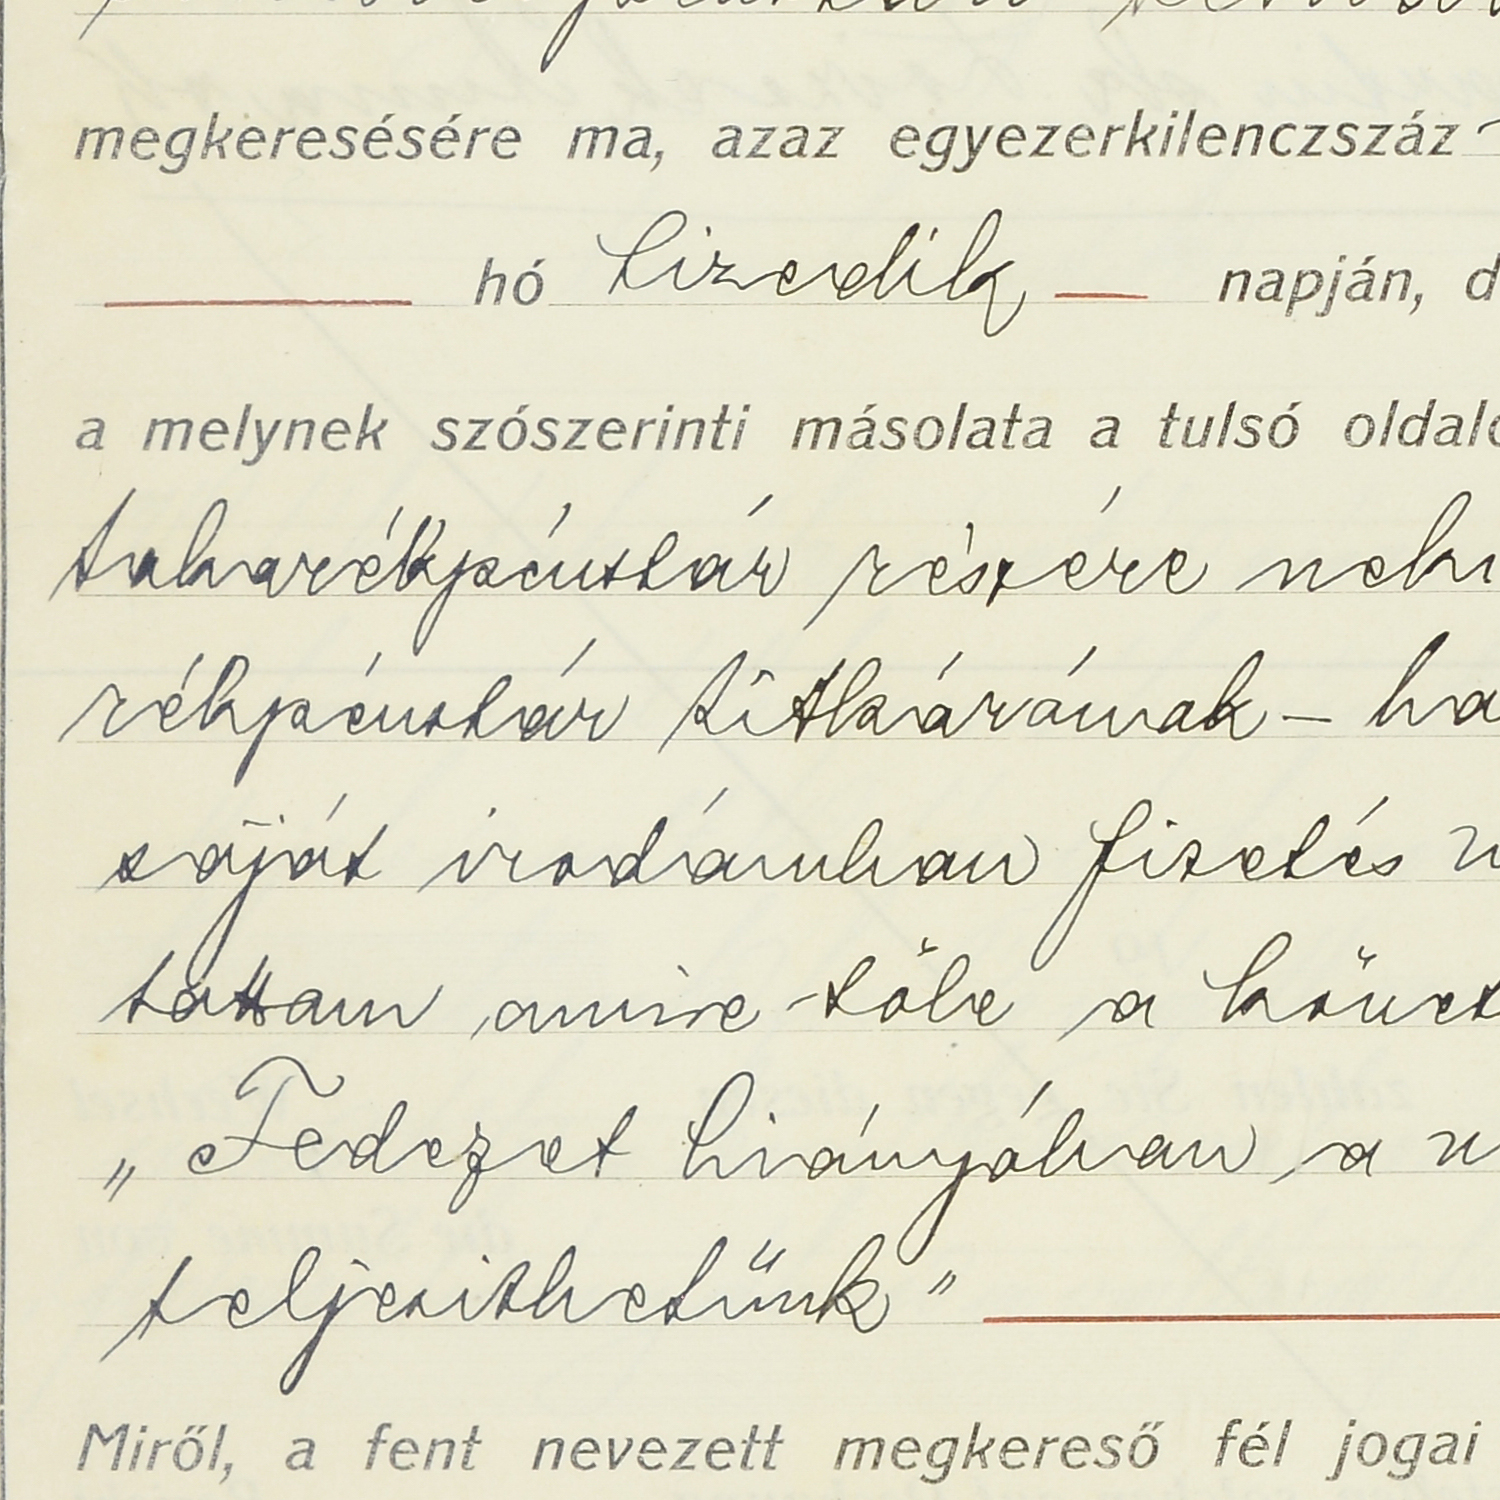 megkeresésére ma, azaz egyezerkilenczszáz
hó tizedik napján, d
a melynek szószerinti másolata a tulsó oldalo
takarékpénztár részére neki
rékpénztár titkárának – ha
saját irodámban fizetés v
tattam amire tőle a követ
„Fedezet hiányában a v
teljesithetünk"
Miről, a fent nevezett megkereső fél jogai